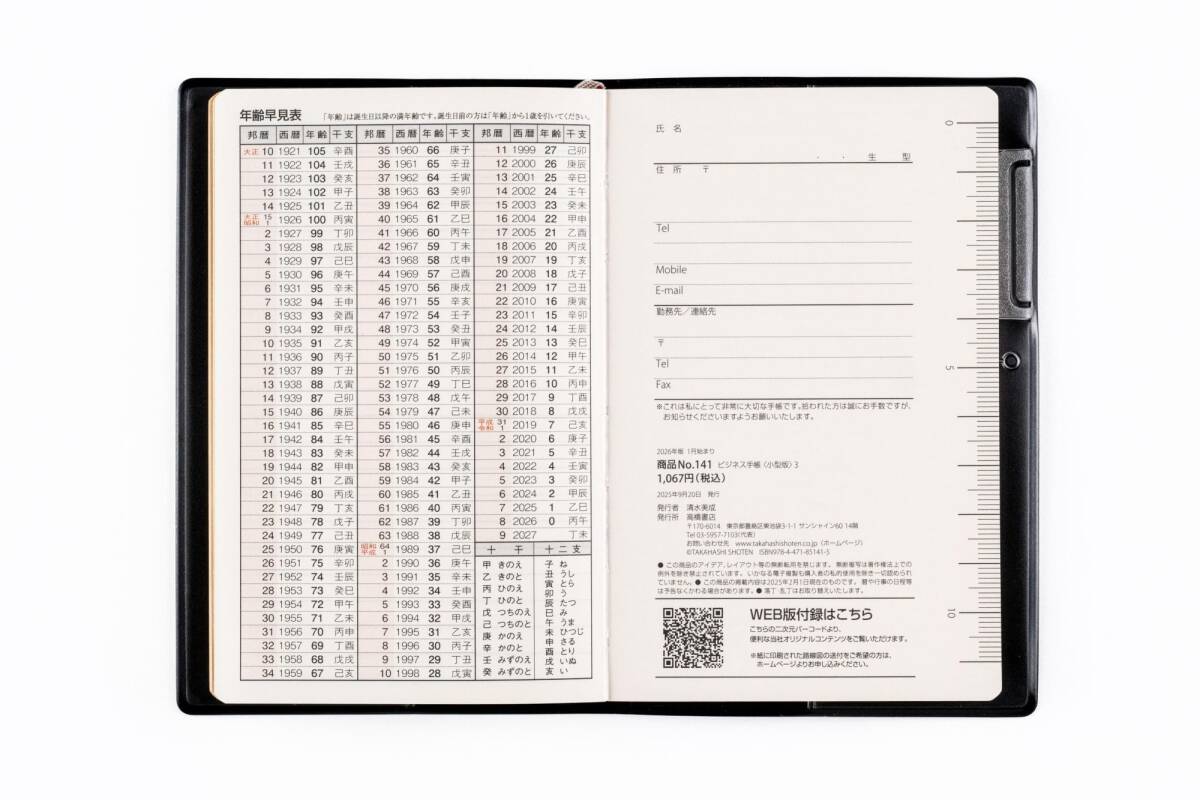 年齢早見表 「年齢」は誕生日以降の満年齢です。誕生日前の方は「年齢」から1歳を引いてください。
邦暦 西暦 年齢 干支 邦暦 西暦 年齢 干支 邦暦 西暦 年齢 干支
大正 10 1921 105 辛酉 35 1960 66 庚子 11 1999 27 己卯
11 1922 104 壬戌 36 1961 65 辛丑 12 2000 26 庚辰
12 1923 103 癸亥 37 1962 64 壬寅 13 2001 25 辛巳
13 1924 102 甲子 38 1963 63 癸卯 14 2002 24 壬午
14 1925 101 乙丑 39 1964 62 甲辰 15 2003 23 癸未
大正 15 昭和 1 1926 100 丙寅 40 1965 61 乙巳 16 2004 22 甲申
2 1927 99 丁卯 41 1966 60 丙午 17 2005 21 乙酉
3 1928 98 戊辰 42 1967 59 丁未 18 2006 20 丙戌
4 1929 97 己巳 43 1968 58 戊申 19 2007 19 丁亥
5 1930 96 庚午 44 1969 57 己酉 20 2008 18 戊子
6 1931 95 辛未 45 1970 56 庚戌 21 2009 17 己丑
7 1932 94 壬申 46 1971 55 辛亥 22 2010 16 庚寅
8 1933 93 癸酉 47 1972 54 壬子 23 2011 15 辛卯
9 1934 92 甲戌 48 1973 53 癸丑 24 2012 14 壬辰
10 1935 91 乙亥 49 1974 52 甲寅 25 2013 13 癸巳
11 1936 90 丙子 50 1975 51 乙卯 26 2014 12 甲午
12 1937 89 丁丑 51 1976 50 丙辰 27 2015 11 乙未
13 1938 88 戊寅 52 1977 49 丁巳 28 2016 10 丙申
14 1939 87 己卯 53 1978 48 戊午 29 2017 9 丁酉
15 1940 86 庚辰 54 1979 47 己未 30 2018 8 戊戌
16 1941 85 辛巳 55 1980 46 庚申 平成 31 令和 1 2019 7 己亥
17 1942 84 壬午 56 1981 45 辛酉 2 2020 6 庚子
18 1943 83 癸未 57 1982 44 壬戌 3 2021 5 辛丑
19 1944 82 甲申 58 1983 43 癸亥 4 2022 4 壬寅
20 1945 81 乙酉 59 1984 42 甲子 5 2023 3 癸卯
21 1946 80 丙戌 60 1985 41 乙丑 6 2024 2 甲辰
22 1947 79 丁亥 61 1986 40 丙寅 7 2025 1 乙巳
23 1948 78 戊子 62 1987 39 丁卯 8 2026 0 丙午
24 1949 77 己丑 63 1988 38 戊辰 9 2027 丁未
25 1950 76 庚寅 昭和 64 平成 1 1989 37 己巳 十干 十二支
26 1951 75 辛卯 2 1990 36 庚午 甲 きのえ 子 ね
27 1952 74 壬辰 3 1991 35 辛未 乙 きのと 丑 うし
28 1953 73 癸巳 4 1992 34 壬申 丙 ひのえ 寅 とら
29 1954 72 甲午 5 1993 33 癸酉 丁 ひのと 卯 う
30 1955 71 乙未 6 1994 32 甲戌 戊 つちのえ 辰 たつ
31 1956 70 丙申 7 1995 31 乙亥 己 つちのと 巳 み
32 1957 69 丁酉 8 1996 30 丙子 庚 かのえ 午 うま
33 1958 68 戊戌 9 1997 29 丁丑 辛 かのと 未 ひつじ
34 1959 67 己亥 10 1998 28 戊寅 壬 みずのえ 申 さる
癸 みずのと 酉 とり
戌 いぬ
亥 い
氏名
・ ・ 生 型
住所 〒
Tel
Mobile
E-mail
勤務先／連絡先
〒
Tel
Fax
※これは私にとって非常に大切な手帳です。拾われた方は誠にお手数ですが、
お知らせくださいますようお願いいたします。
2026年版 1月始まり
商品No.141 ビジネス手帳〈小型版〉3
1,067円(税込)
2025年9月20日 発行
発行者 清水美成
発行所 高橋書店
〒170-6014 東京都豊島区東池袋3-1-1 サンシャイン60 14階
Tel 03-5957-7103(代表)
お問い合わせ www.takahashishoten.co.jp (ホームページ)
©TAKAHASHI SHOTEN ISBN978-4-471-85141-5
● この商品のアイデア、レイアウト等の無断転用を禁じます。 無断複写は著作権法上での
例外を除き禁止されています。 いかなる電子複製も購入者の私的使用を除き一切認められ
ていません。● この商品の掲載内容は2025年2月1日現在のものです。 暦や行事の日程等
は予告なくかわる場合があります。● 落丁・乱丁はお取り替えいたします。
WEB版付録はこちら
こちらの二次元バーコードより、
便利な当社オリジナルコンテンツをご覧いただけます。
※紙に印刷された路線図の送付をご希望の方は、
ホームページよりお申し込みください。
0
5
10